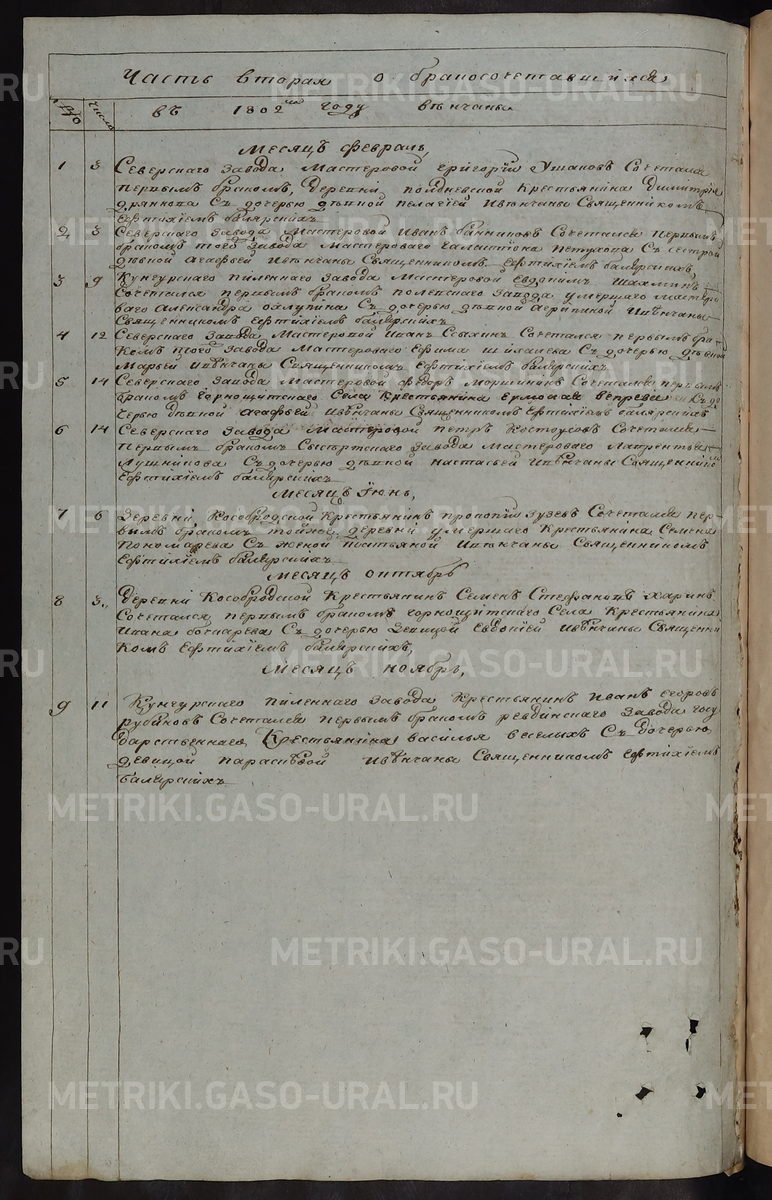 Часть вторая о бракосочетавшихся
№ число въ 1802мъ году венчаны
Месяцъ февраль,
1 3 Северскаго завода Мастеровой григорïй Ушаковъ Сочетался
первымъ бракомъ, деревни полдневской крестьянина Димитрïя
Съ дочерью девкой пелагïей И венчаны Священникомъ
Ефтихïемъ балярскихъ
2 3 Северскаго завода Мастеровой Иванъ банниковъ Сочетался первымъ
бракомъ тогоже завода Мастероваго петухова Съ сестрой
девкой Агафьей И венчаны Священникомъ Ефтихïемъ балярскихъ
3 9 Кунгурскаго пиленнаго завода Мастеровой Евдокимъ Шахминъ
Сочетался первымъ бракомъ полевскаго завода умершаго масте
ваго Александра охлупина Съ дочерью девкой Агрипиной И венчаны
Священникомъ Ефтихïемъ балярскихъ
4 12 Северскаго завода Мастеровой Иванъ Сочетался первымъ бра
комъ тогоже завода Мастероваго Ефима Съ дочерью девкой
Марьей И венчаны Священникомъ Ефтихïемъ балярскихъ
5 14 Северскаго завода Мастеровой федоръ Сочетался первымъ
бракомъ горнощитскаго Села крестьянина ермолая Съ до
черью девкой Агафьей И венчаны Священникомъ Ефтихïемъ балярскихъ
6 14 Северскаго завода Мастеровой петръ Костоусовъ Сочетался
первымъ бракомъ Сысертскаго завода Мастероваго лаврентья
Лушникова Съ дочерью девкой настасьей И венчаны Священнико
Ефтихïемъ балярскихъ
Месяцъ Iюнь,
7 6 Деревни Кособродской крестьянинъ прокопïй гузевъ Сочетался пер
вымъ бракомъ тойже деревни умершаго крестьянина Семена
пономарева Съ женой И венчаны Священникомъ
Ефтихïемъ балярскихъ
месяцъ октябрь
8 3 Деревни Кособродской Крестьянинъ Семенъ Стефановъ харинъ
Сочетался первымъ бракомъ горнощитскаго Села крестьянина
Ивана бочкарева Съ дочерью девицой Евдокïей И венчаны Священни
комъ Ефтихïемъ балярскихъ,
Месяцъ ноябрь,
9 11 Кунгурскаго пиленнаго завода крестьянинъ иванъ егоровъ
рубцовъ Сочетался первымъ бракомъ ревдинскаго завода госу
дарственнаго крестьянина василья веселыхъ Съ дочерью
девицой параскевой И венчаны Священникомъ Ефтихïемъ
балярскихъ
METRIKI.GASO-URAL.RU